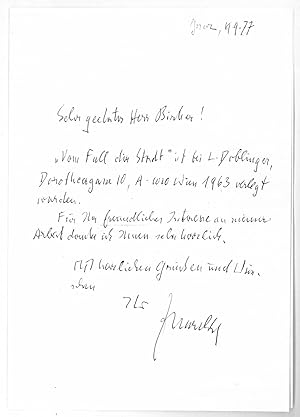 19.9.77
Sehr geehrter Herr Binder!
"Vom Fall der Stadt" ist bei L. Doblinger,
Dorotheergasse 10, A-1010 Wien 1963 verlegt
worden.
Für Ihr freundliches Interesse an meiner
Arbeit danke ich Ihnen sehr herzlich.
Mit herzlichen Grüssen und Wün-
schen
Ihr